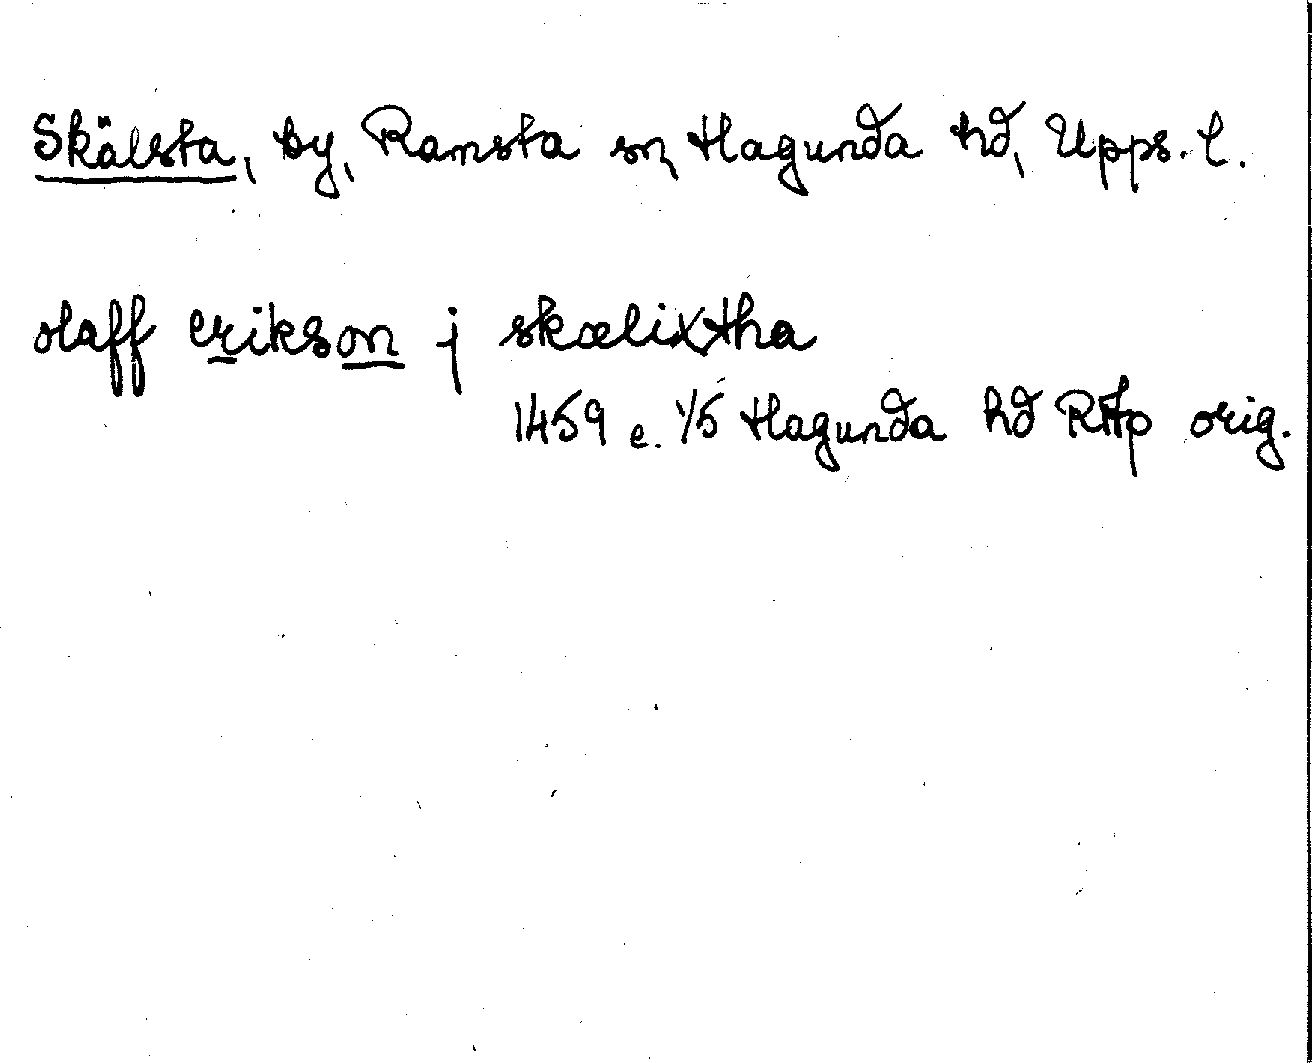 Skälsta, by, Ramsta sn, Hagunda hd, Upps. l.
olaff erikson j skælixtha
1459 e. 1/5 Hagunda hd RAp orig.